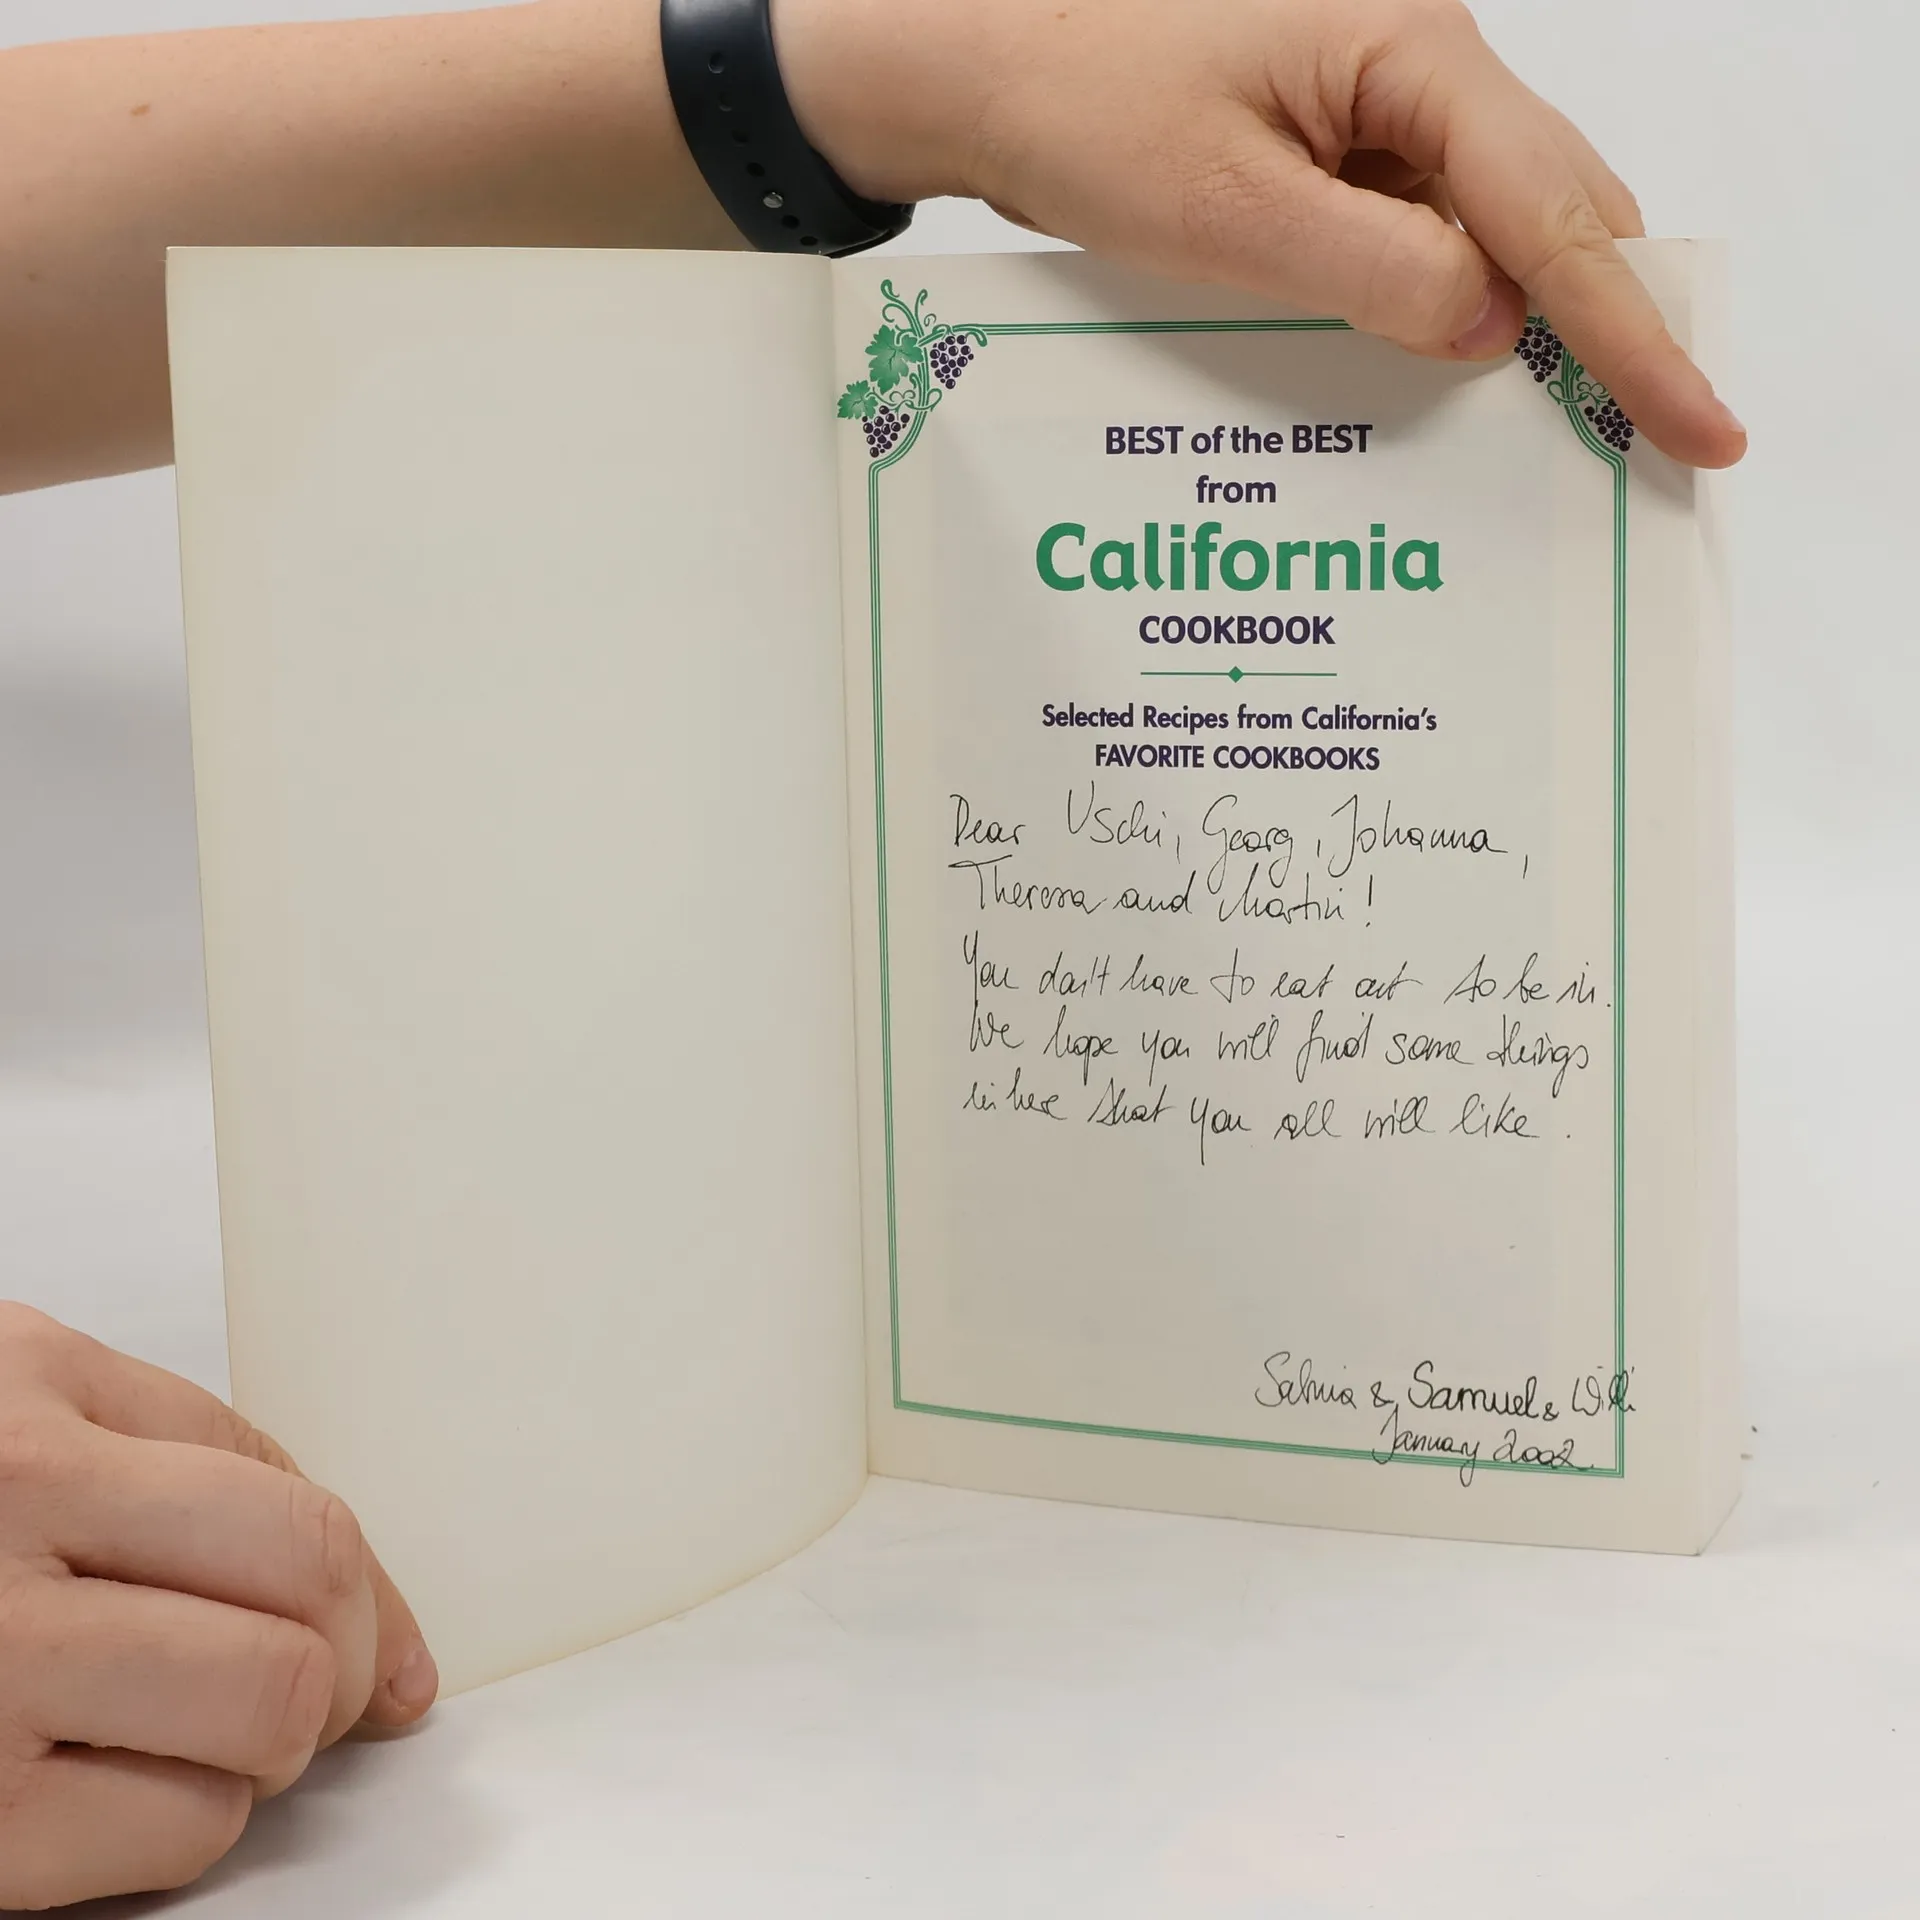 BEST of the BEST
from
California
COOKBOOK
Selected Recipes from California's
FAVORITE COOKBOOKS
Dear Uschi, Georg, Johanna,
Theresa and Martin!
You don't have to eat out to be in.
We hope you will find some things
in here that you all will like.
Sabina & Samuel & Willi
January 2002.